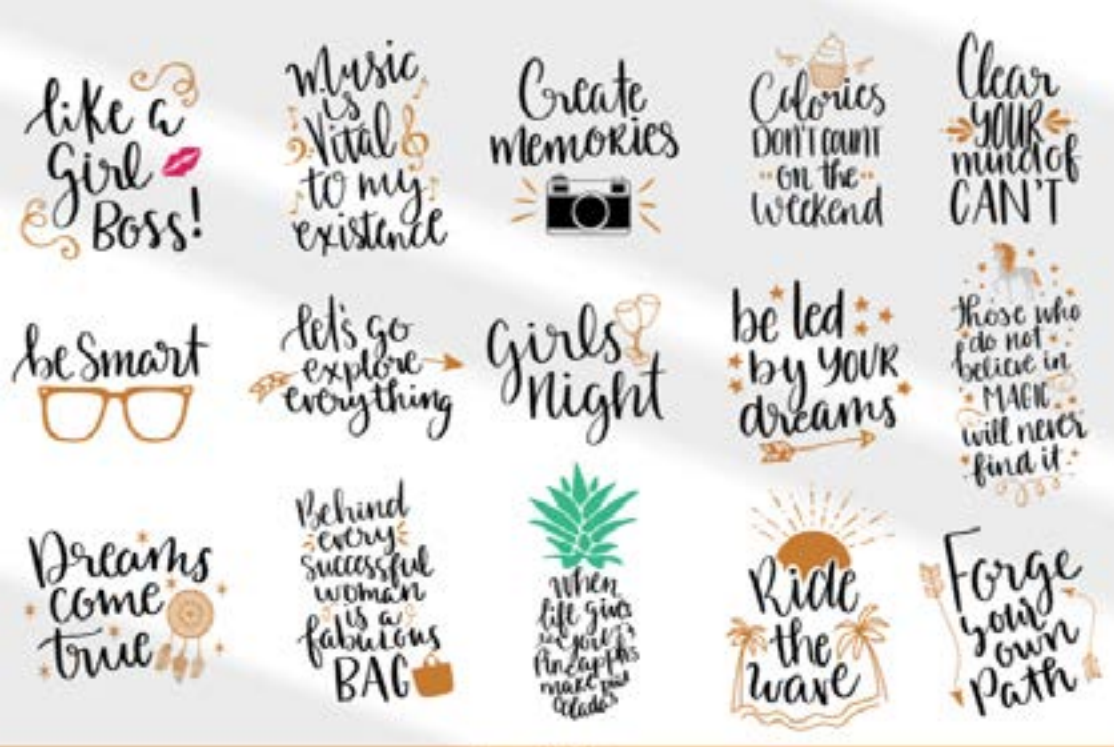 like a
Girl
Boss!
Music
is
Vital
to my
existence
Create
memories
Calories
DON'T COUNT
on the
weekend
Clear
YOUR
mind of
CAN'T
be Smart
let's go
explore
everything
Girls
Night
be led
by YOUR
dreams
Those who
do not
believe in
MAGIC
will never
find it
Dreams
come
true
Behind
every
successful
woman
is a
fabulous
BAG
When
life gives
you
Pineapples
make
Coladas
Ride
the
wave
Forge
your
own
Path